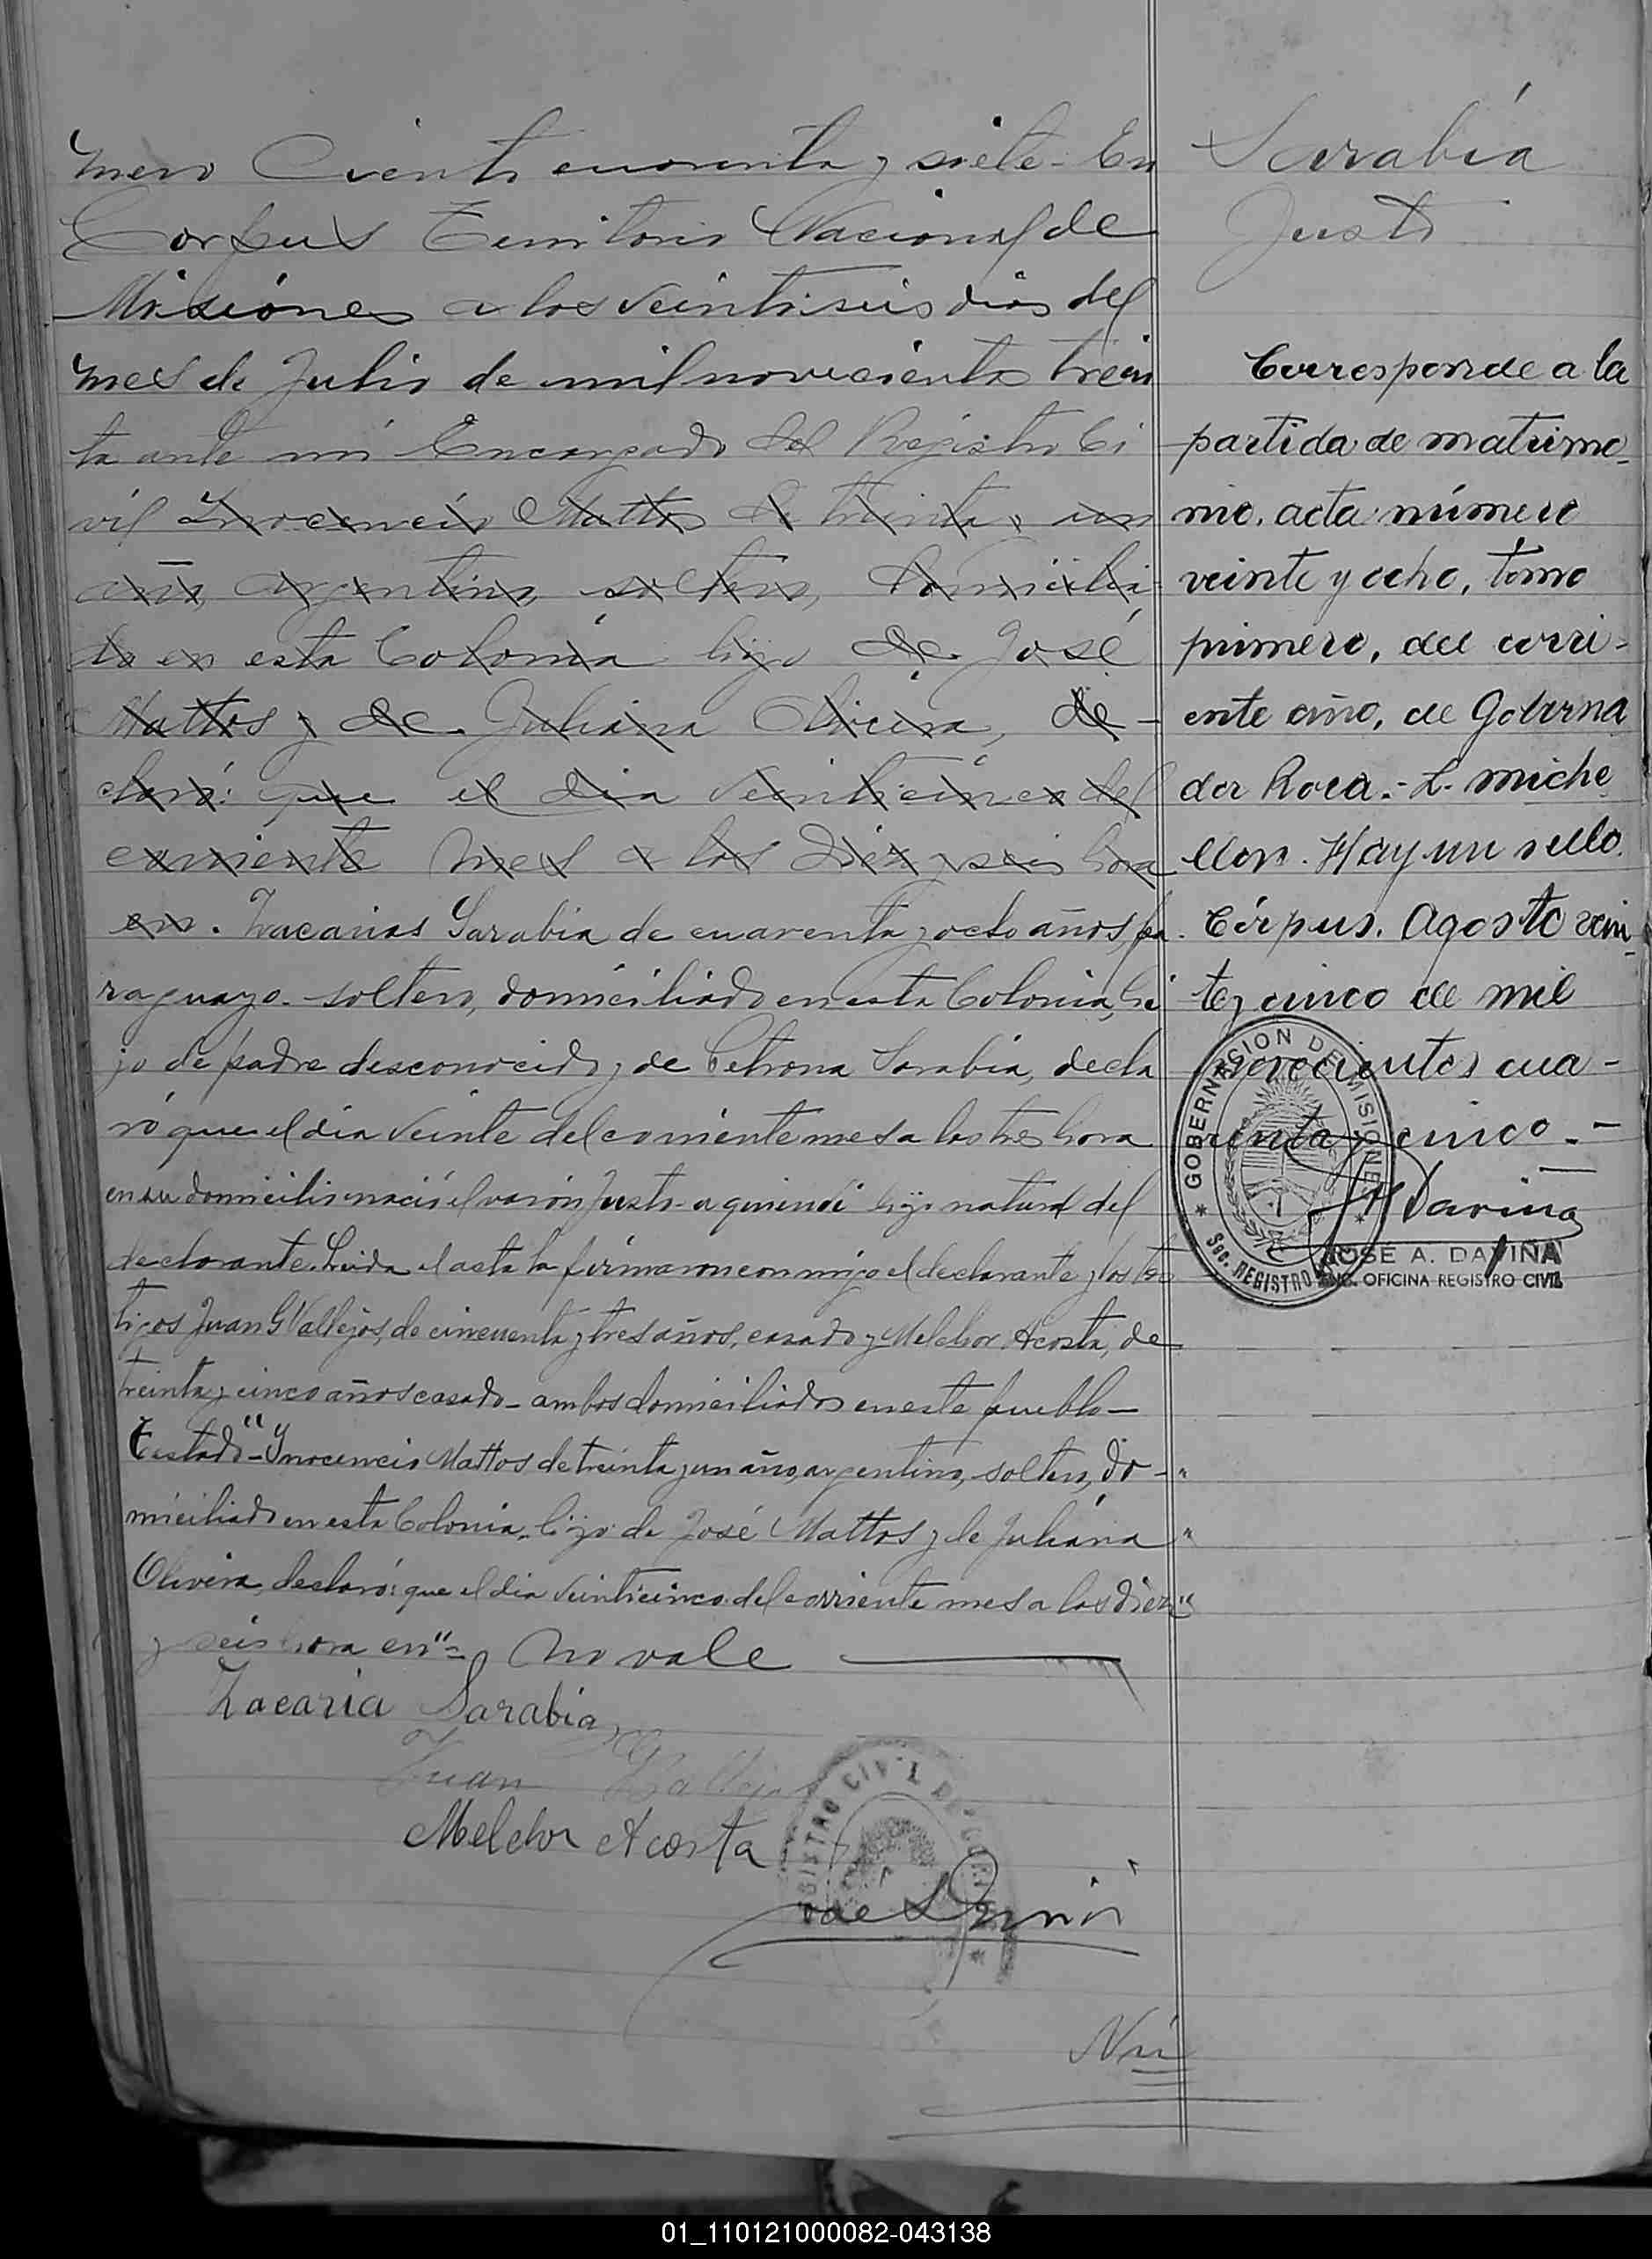 mero Ciento cuarenta y siete - En
Corpus Territorio Nacional de
Misiones a los veintiseis dias del
mes de Julio de mil novecientos trein
ta ante mi Encargado del Registro Ci
vil Inocencio Mattos de treinta y un
año, argentino, soltero, domicilia
do en esta Colonia hijo de José
Mattos y de Juliana Olivera, de-
claró: que el dia veinticinco del
corriente mes a las diez y seis hora
en. Zacarias Sarabia de cuarenta y ocho años, pa-
raguayo- soltero, domiciliado en esta Colonia, hi
jo de padre desconocido y de Petrona Sarabia, decla
ró que el dia veinte del corriente mes a las tres hora
en su domicilio nació el varón Justo- a quien di hijo natural del
declarante. Leida el acta la firmaron conmigo el declarante y los tes
tigos Juan G Vallejos, de cincuenta y tres años, casado y Melchor Acosta, de
treinta y cinco años casado- ambos domiciliados en este pueblo-
Testado-"Inocencio Mattos de treinta y un año, argentino, soltero, do-"
miciliado en esta Colonia, hijo de José Mattos y de Juliana "
Olivera, declaró: que el dia veinticinco del corriente mes a las diez"
y seis hora en"= No vale
Zacaria Sarabia
Juan G Vallejo
Melchor Acosta
REGISTRO CIVIL
Nú
Sarabia
Justo
Corresponde a la
partida de matrimo-
nio, acta número
veinte y ocho, tomo
primero, del corri-
ente año, de Goberna
dor Roca.- L. Miche
llon. Hay un sello.
Córpus. Agosto vein-
te y cinco de mil
novecientos cua-
renta y cinco.-
GOBERNACION DE MISIONES
Sec. REGISTRO
J A Daviña
JOSÉ A. DAVIÑA
ENC. OFICINA REGISTRO CIVIL
01_110121000082-043138